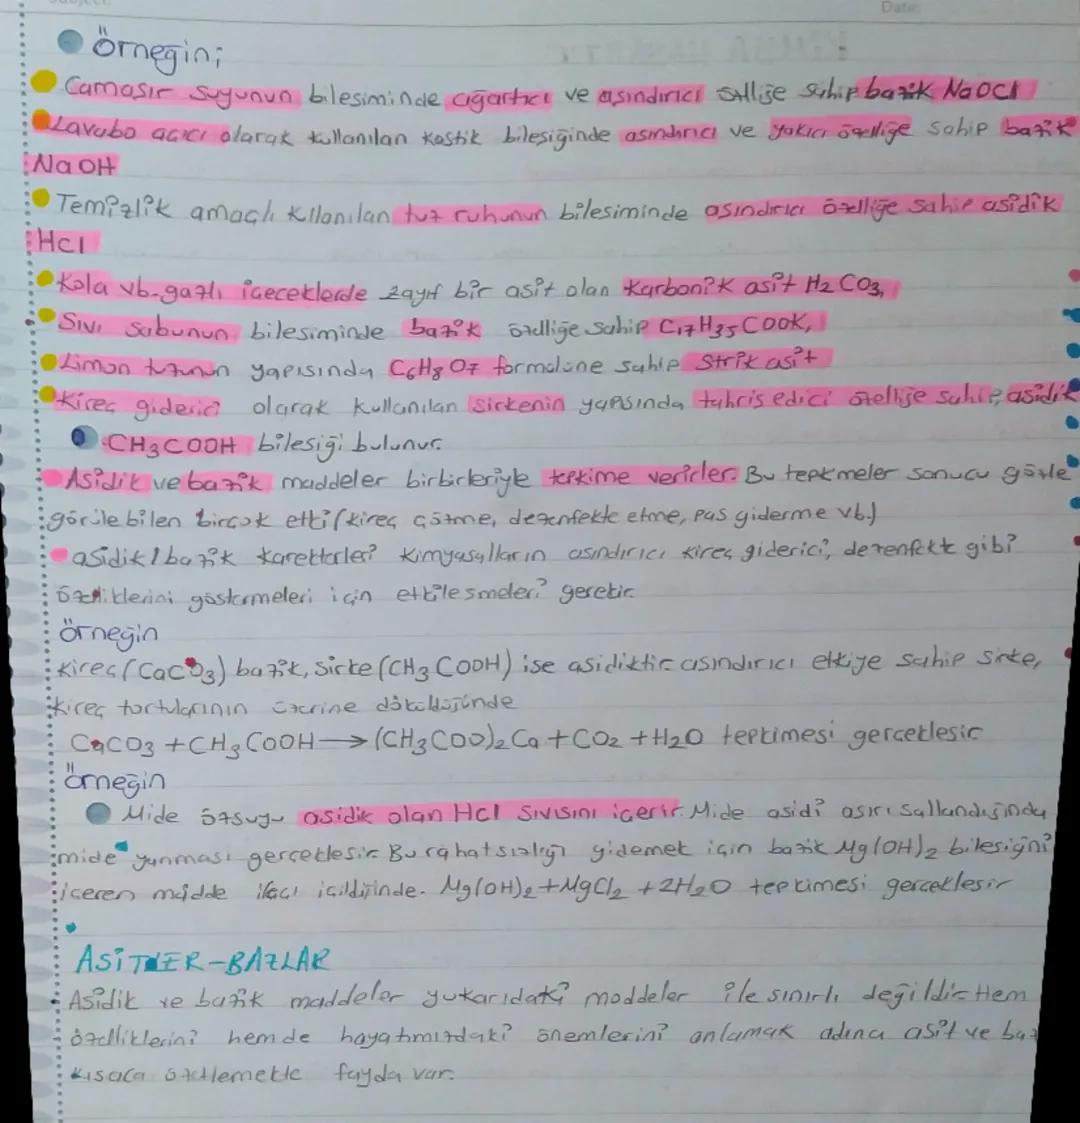 Date:
örneğin;
Camasır suyunun bilesiminde ağartıcı ve asındırıcı özlliğe sahip bazik NaOCl
Lavabo acıcı olarak kullanılan kostik bilesiğinde asındırıcı ve yakıcı özelliğe sahip bazik
NaOH
Temizlik amaçlı kllanılan tuz ruhunun bilesiminde asındırıcı özelliğe sahip asidik
HCl
Kola vb. gazlı içeceklerde zayıf bir asit olan Karbonik asit H2CO3,
Sıvı Sabunun bilesiminde bazik özelliğe sahip C17H35COOK,
Limon tuzunun yapısında C6H8O7 formulüne sahip Strik asit
Kireç giderici olarak kullanılan sirkenin yapısında tahris edici özelliğe sahip, asidik
CH3COOH bilesiği bulunur.
Asidik ve bazik maddeler birbirleriyle tepkime verirler. Bu tepkmeler sonucu gözle
görüle bilen bircok etki (kireç çözme, dezenfekte etme, pas giderme vb.)
asidik / bazik karekterleri kimyasalların asındırıcı kireç giderici, dezenfekte gibi
özelliklerini göstermeleri için etkilesmeleri gerekir
örneğin
kireç (CaCO3) bazik, sirke (CH3COOH) ise asidiktir asındırıcı etkiye sahip sirke,
kireç tortularının üzerine döküldüğünde
CaCO3 + CH3COOH → (CH3COO)2Ca + CO2 + H2O tepkimesi gerceklesir
örneğin
Mide özsuyu asidik olan HCl sıvısını içerir. Mide asidi asırı salgılandığında
mide yanması gerceklesir. Bu rahatsızlığı gidemek için bazik Mg(OH)2 bilesiğni
iceren madde ilacı icildiğinde. Mg(OH)2 + MgCl2 + 2H2O tepkimesi gerceklesir
ASİTLER-BAZLAR
Asidik ve bazik maddeler yukarıdaki moddeler ile sınırlı değildir Hem
özelliklerini hem de hayatımızdaki önemlerini anlamak adına asit ve baz
kısaca özetlemekte fayda var.